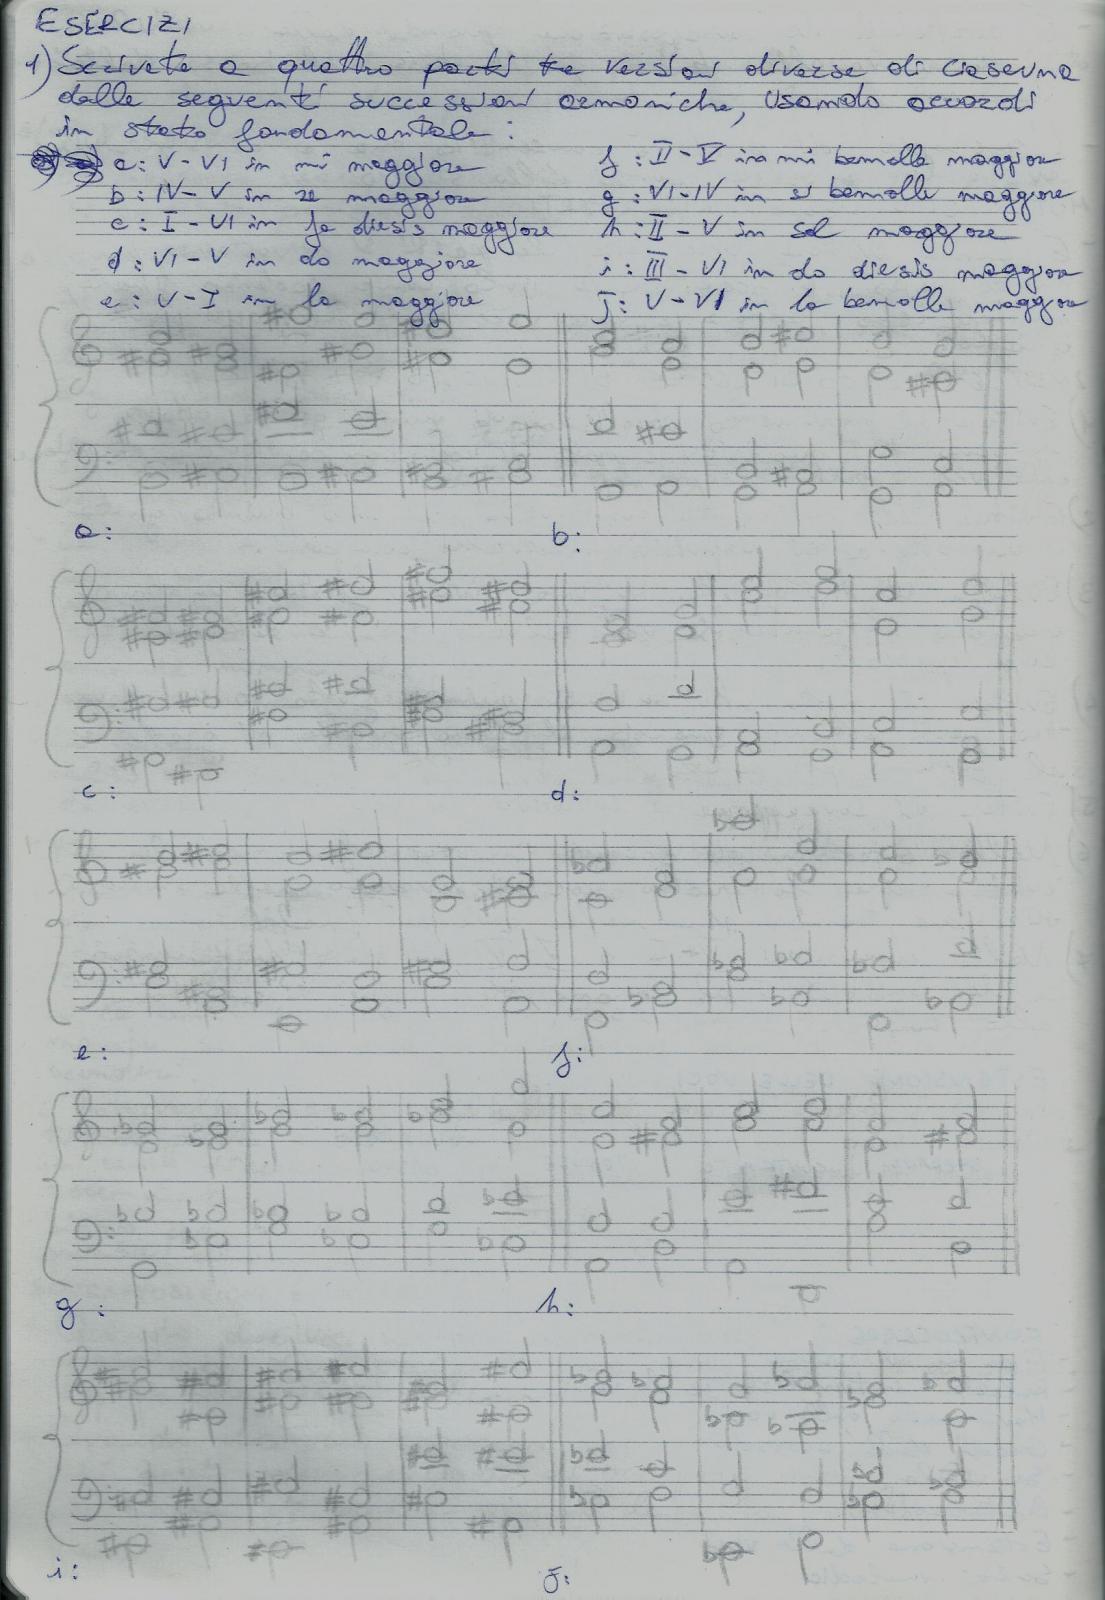 ESERCIZI
1) Scrivete a quattro parti tre versioni diverse di ciascuna
delle seguenti successioni armoniche, usando accordi
in stato fondamentale:
a: V-VI in mi maggiore
b: IV-V in re maggiore
c: I-VI in fa diesis maggiore
d: VI-V in do maggiore
e: V-I in la maggiore
f: II-V in mi bemolle maggiore
g: VI-IV in si bemolle maggiore
h: II-V in sol maggiore
i: III-VI in do diesis maggiore
j: V-VI in la bemolle maggiore
a: b:
c: d:
e: f:
g: h:
i: j: